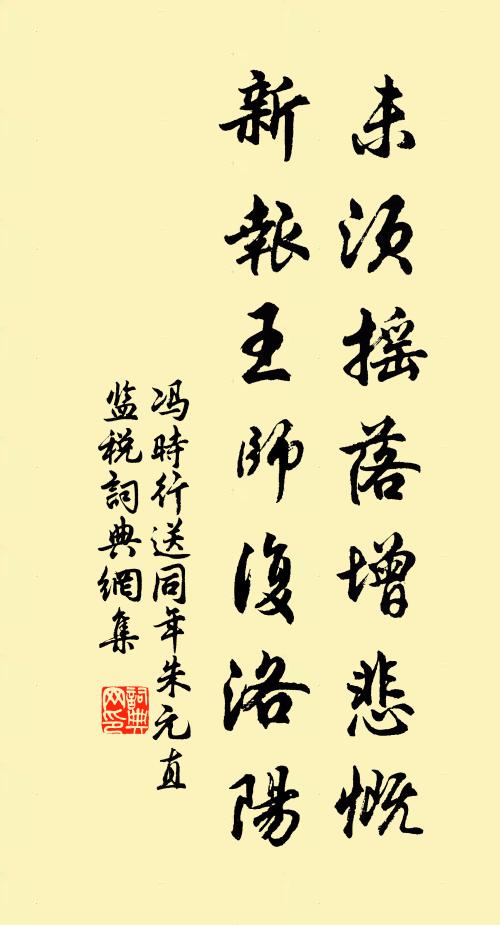 未須摇落增悲慨
新報王師復洛陽
冯時行送同年朱元直
监税詞典網集
詞典网印